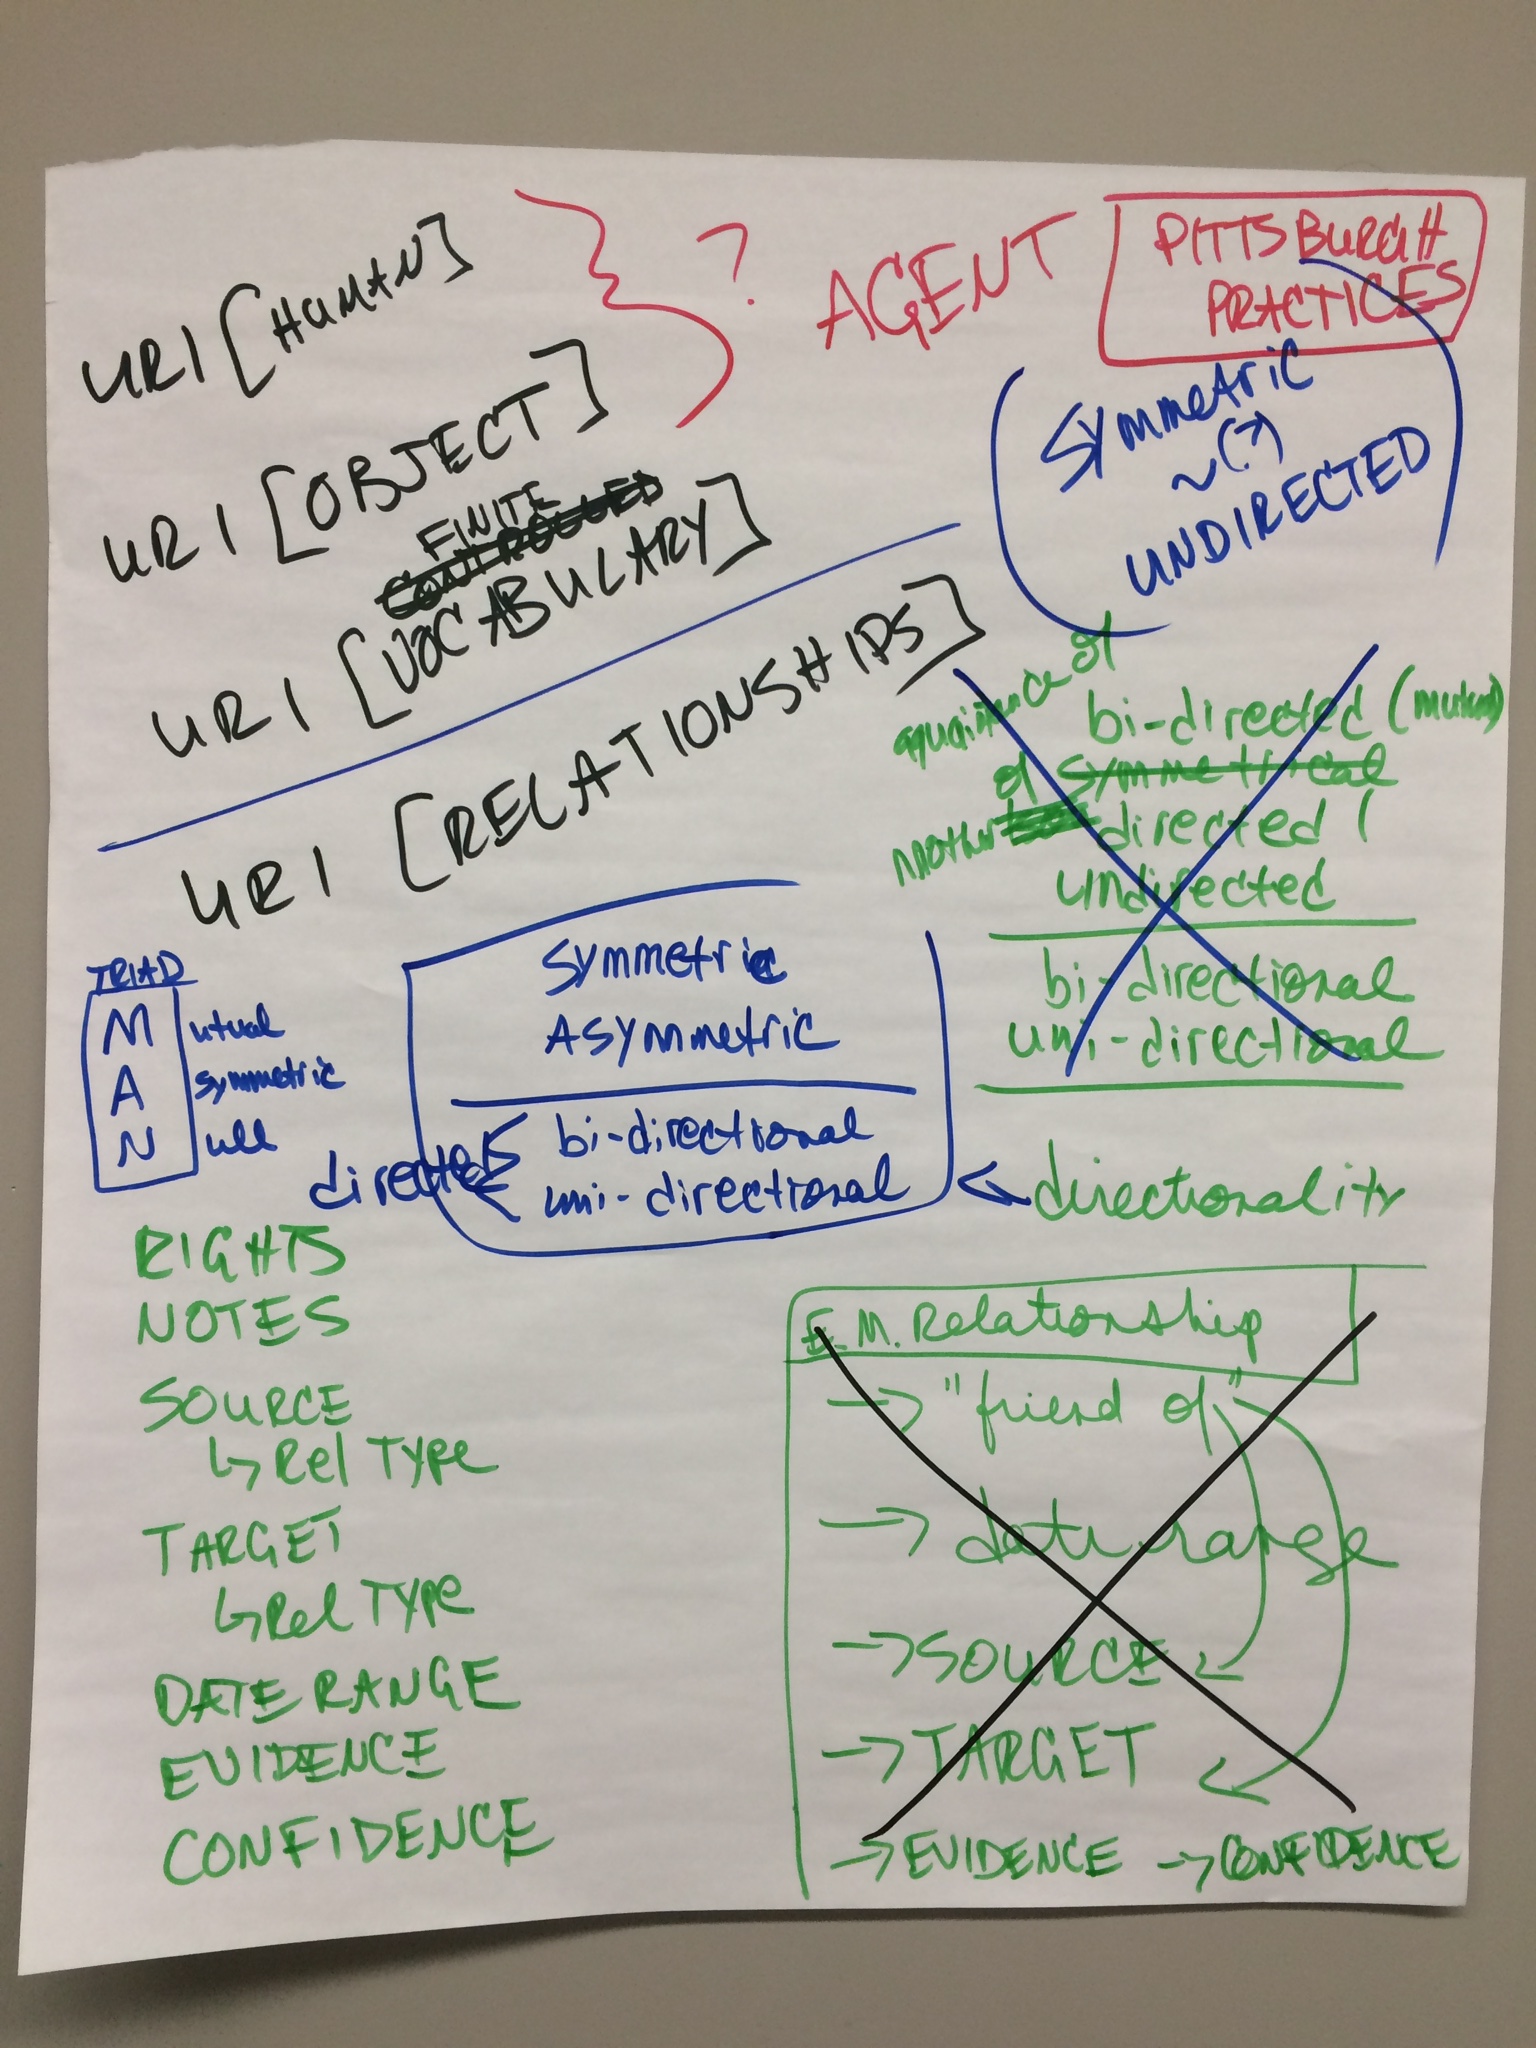 URI [HUMAN]
? AGENT
PITTSBURGH
PRACTICES
URI [OBJECT]
FINITE
CONTROLLED
URI [VOCABULARY]
symmetric
~(?)
UNDIRECTED
URI [RELATIONSHIPS]
aquaintance of
bi-directed (mutual)
symmetrical
mother of
directed /
undirected
bi-directional
uni-directional
TRIAD
M utual
A symmetric
N ull
symmetric
Asymmetric
directed
bi-directional
uni-directional
directionality
RIGHTS
NOTES
SOURCE
↳ Rel Type
TARGET
↳ Rel Type
DATE RANGE
EVIDENCE
CONFIDENCE
E.M. Relationship
→ "friend of"
→ date range
→ SOURCE
→ TARGET
→ EVIDENCE → CONFIDENCE